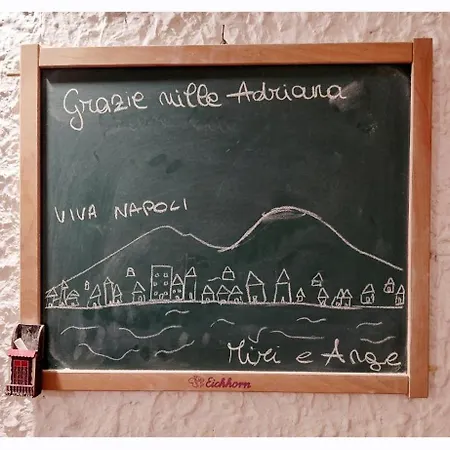 Grazie mille Adriana
VIVA NAPOLI
e Ange
Eichhorn